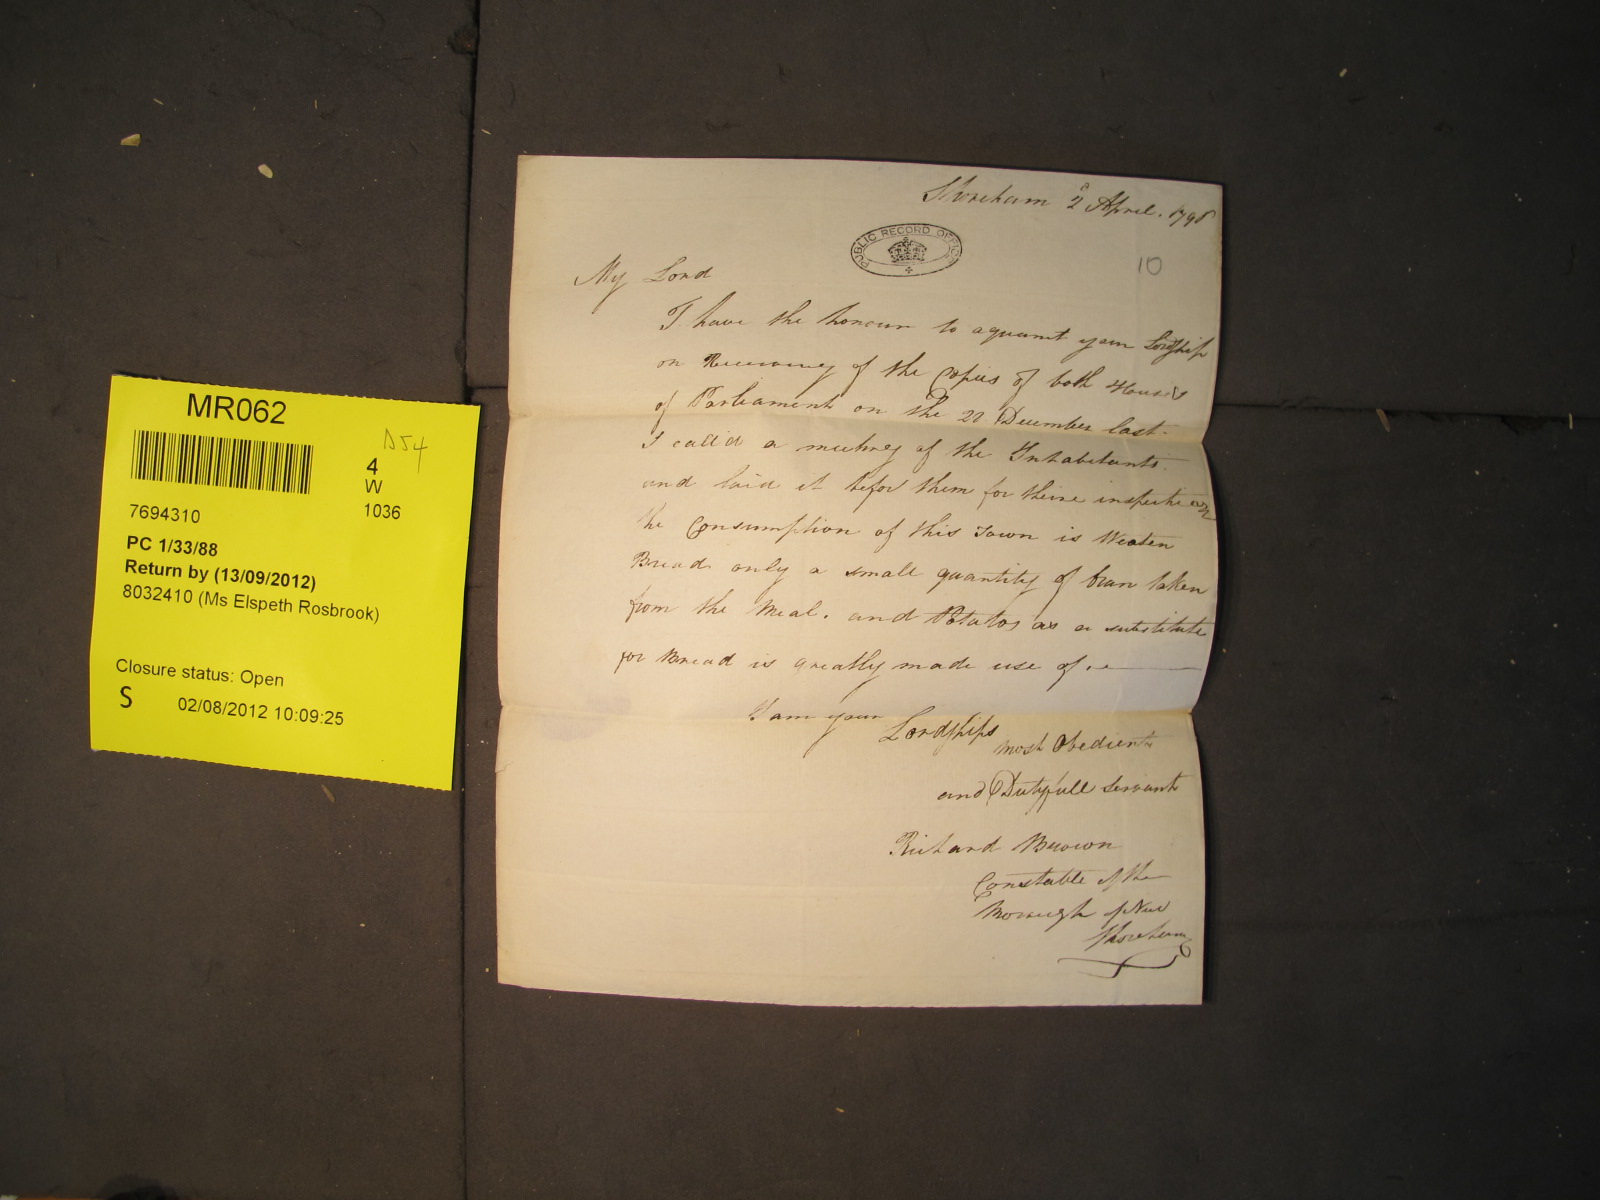 MR062
D54
4
W
7694310
1036
PC 1/33/88
Return by (13/09/2012)
8032410 (Ms Elspeth Rosbrook)
Closure status: Open
S
02/08/2012 10:09:25
Shoreham 2 April. 179
PUBLIC RECORD OFFICE
10
My Lord
I have the honour to aquaint your Lordship
on Receiveing of the Copies of both Houses
of Parliament on the 20 December last.
I call'd a meeting of the Inhabitants.
and laid it befor them for theire inspection
the Consumption of this Town is Weaten
Bread only a small quantity of bran taken
from the Meal. and Potatos as a substitute
for Bread is greatly made use of..
I am your Lordships most Obedient
and Dutyfull servant
Richard Brown
Constable of the
Borough of New
Shoreham